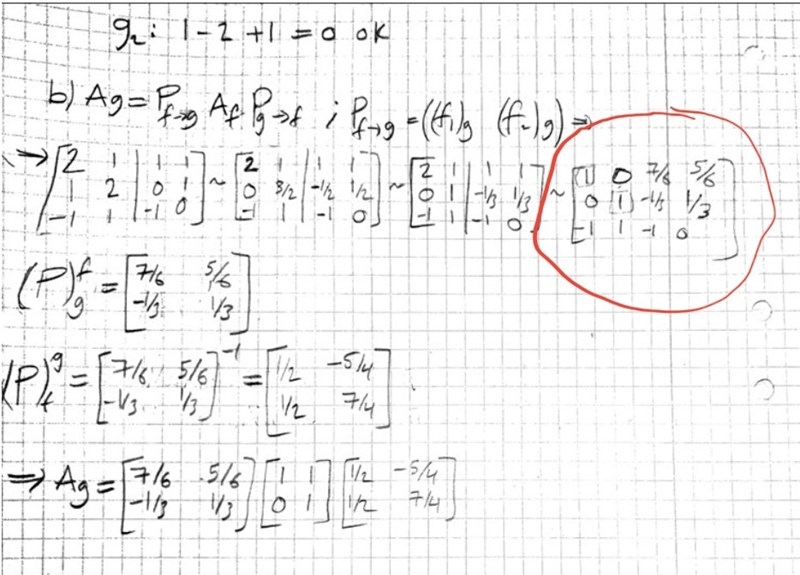 g₂: 1 - 2 + 1 = 0 ok
b) Ag = P_{f→g} A_f P_{g→f} ; P_{f→g} = ((f₁)g (f₂)g) ⇒
→ [2 1 | 1 1; 1 2 | 0 1; -1 1 | -1 0] ~ [2 1 | 1 1; 0 3/2 | -1/2 1/2; -1 1 | -1 0] ~ [2 1 | 1 1; 0 1 | -1/3 1/3; -1 1 | -1 0] ~ [1 0 7/6 5/6; 0 1 -1/3 1/3; -1 1 -1 0]
(P)_g^f = [7/6 5/6; -1/3 1/3]
(P)_f^g = [7/6 5/6; -1/3 1/3]^{-1} = [1/2 -5/4; 1/2 7/4]
⇒ Ag = [7/6 5/6; -1/3 1/3] [1 1; 0 1] [1/2 -5/4; 1/2 7/4]